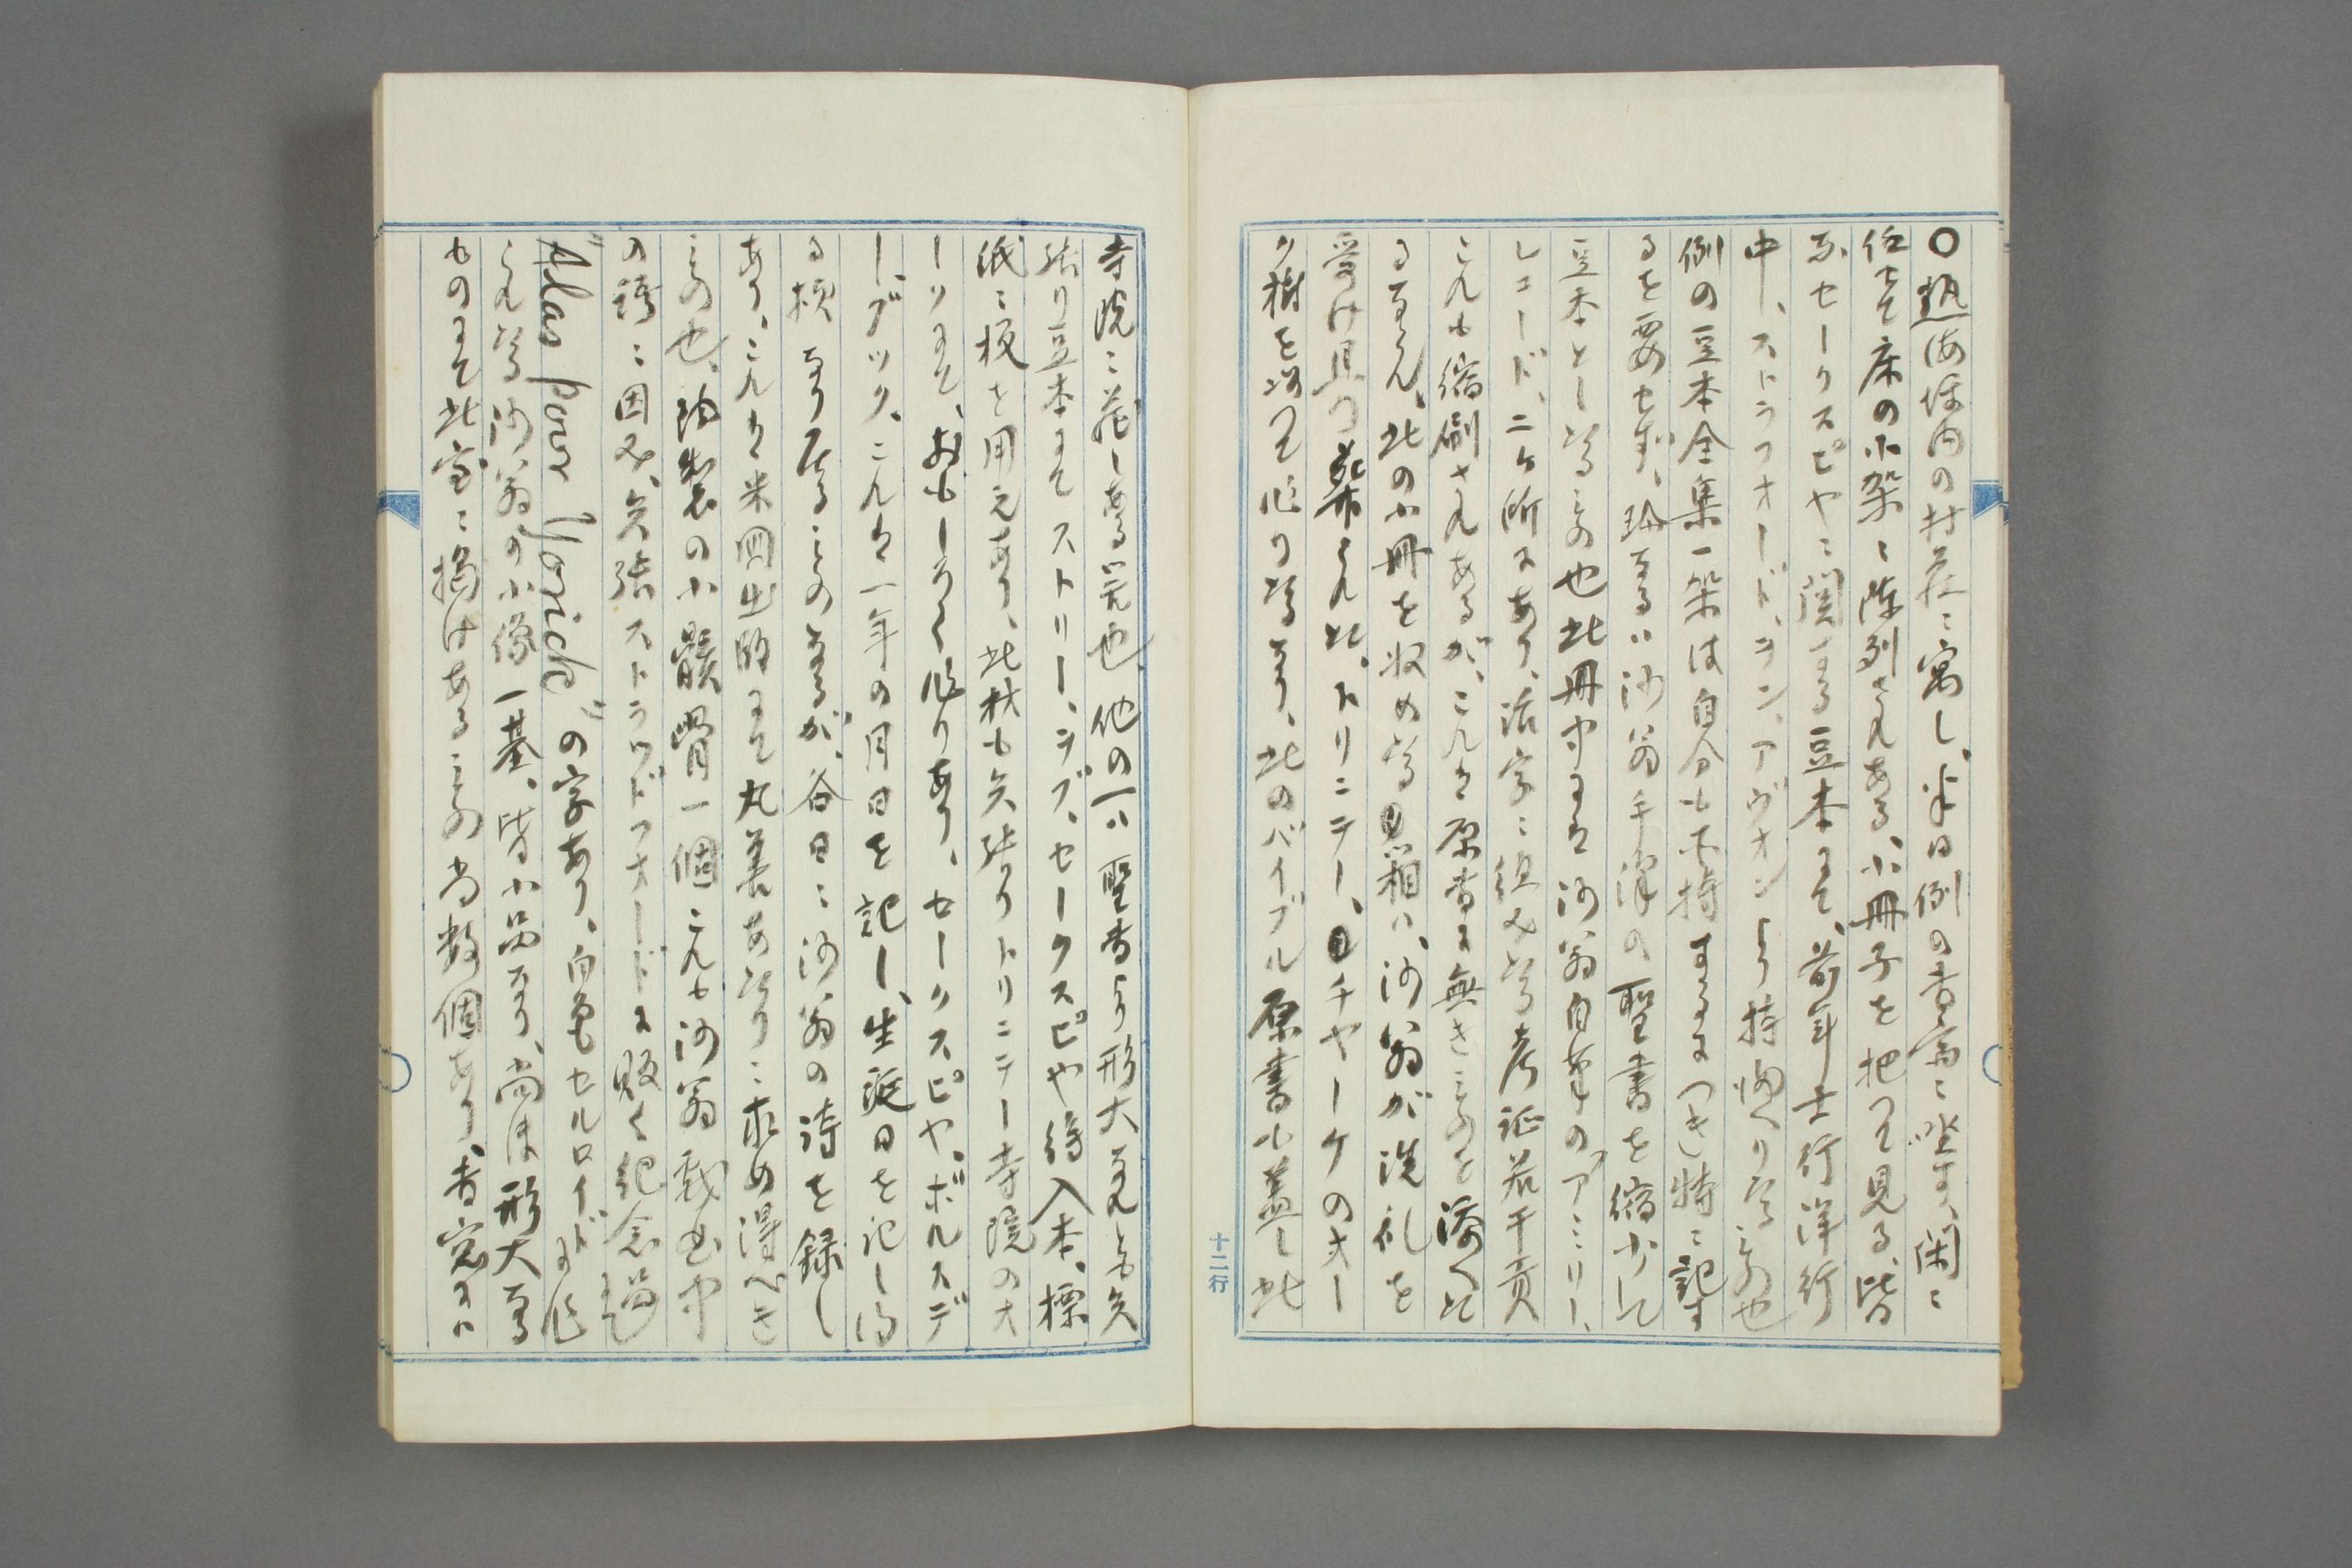 〇熱海坪内の村荘に寓し、半日例の書斎に坐す、閑に
任せて床の小架に陳列されある、小冊子を把つて見る、皆
なセークスピヤに関する豆本にて、前年士行洋行
中、ストラフオード、ヲン、アヴオンより持帰りたるもの也
例の豆本全集一架は自分も所持するにつき特に記す
るを要せず、珍なるは沙翁手沢の聖書を縮少して
豆本としたるもの也此冊中には沙翁自筆のアミリー、
レコード、二ケ所にあり、活字に組みたる考証若干頁
これも縮刷されあるが、これは原書に無きものを添へた
るならん、此の小冊を収めたる箱は、沙翁が洗礼を
受け且つ葬られた、トリニテー、チヤーケのオー
ク樹を以つて作りたるなり、此のバイブル原書は蓋し此
寺院に蔵しある筈也、他の一は聖書より形大なれとも矢
張り豆本にてストリー、ヲブ、セークスピヤ袋入本、標
紙に板を用えあり、此材も矢張りトリニテー寺院のオ
ークにて、おもしろく作りあり、セークスピヤ、ボルスデ
ー、ブツク、これは一年の月日を記し、生誕日を記し得
る様なり居るものなるが、各日に沙翁の詩を録し
あり、これは米国出版にて丸善あたりに求め得べき
もの也、陶製の小髑髏骨一個これも沙翁戯曲中
の諸に因み、矢張ストラツドフオードに販く紀念品にして
"Alas poor Yorick"の字あり、白色セルロイドに作
られたる沙翁の小像一基、皆小品なり、尚ほ形大なる
ものにて此室に掲けあるもの尚数個あり、書窓には
十二行